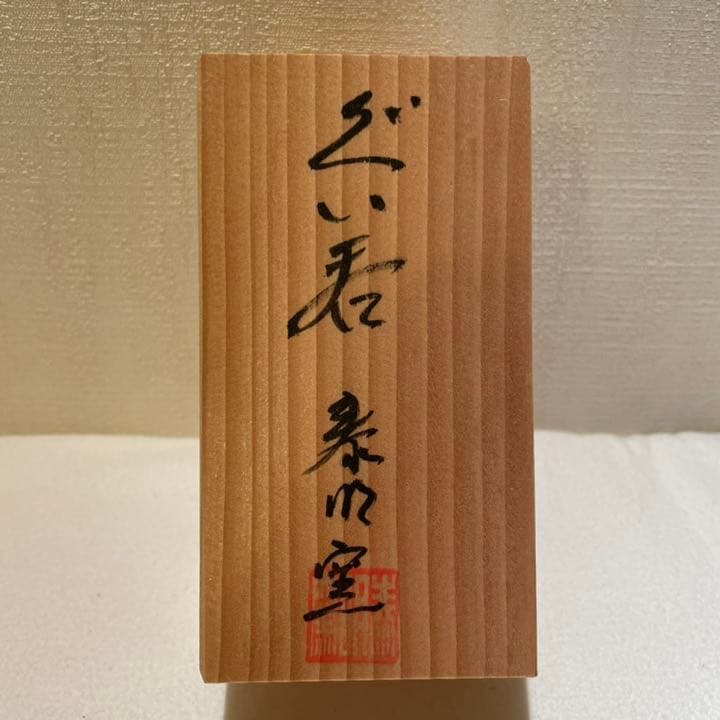 ぐい呑
泰明窯